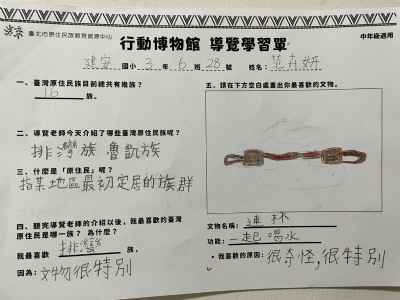 臺北市原住民族教育資源中心
行動博物館 導覽學習單
中年級適用
建安 國小 3 年 6 班 28 號 姓名：范卉妍
一、臺灣原住民族目前總共有幾族？
16 族。
二、導覽老師今天介紹了哪些臺灣原住民族呢？
排灣族 魯凱族
三、什麼是「原住民」呢？
指某地區最初定居的族群
四、聽完導覽老師的介紹以後，我最喜歡的臺灣
原住民是哪一族？為什麼？
我最喜歡 排灣 族。
因為：文物很特別
五、請在下方空白處畫出你最喜歡的文物。
文物名稱：連杯
功能：一起喝水
我喜歡的原因：很奇怪，很特別